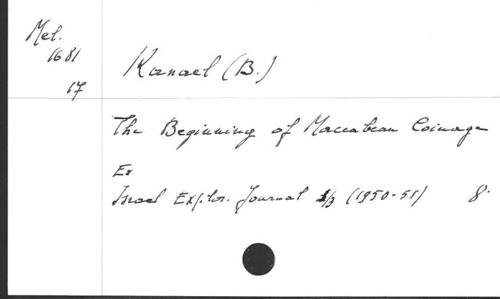 Mel.
1681
17
Kanael (B.)
The Beginning of Maccabean Coinage
Ex
Israel Explor. Journal 1/3 (1950-51) 8°